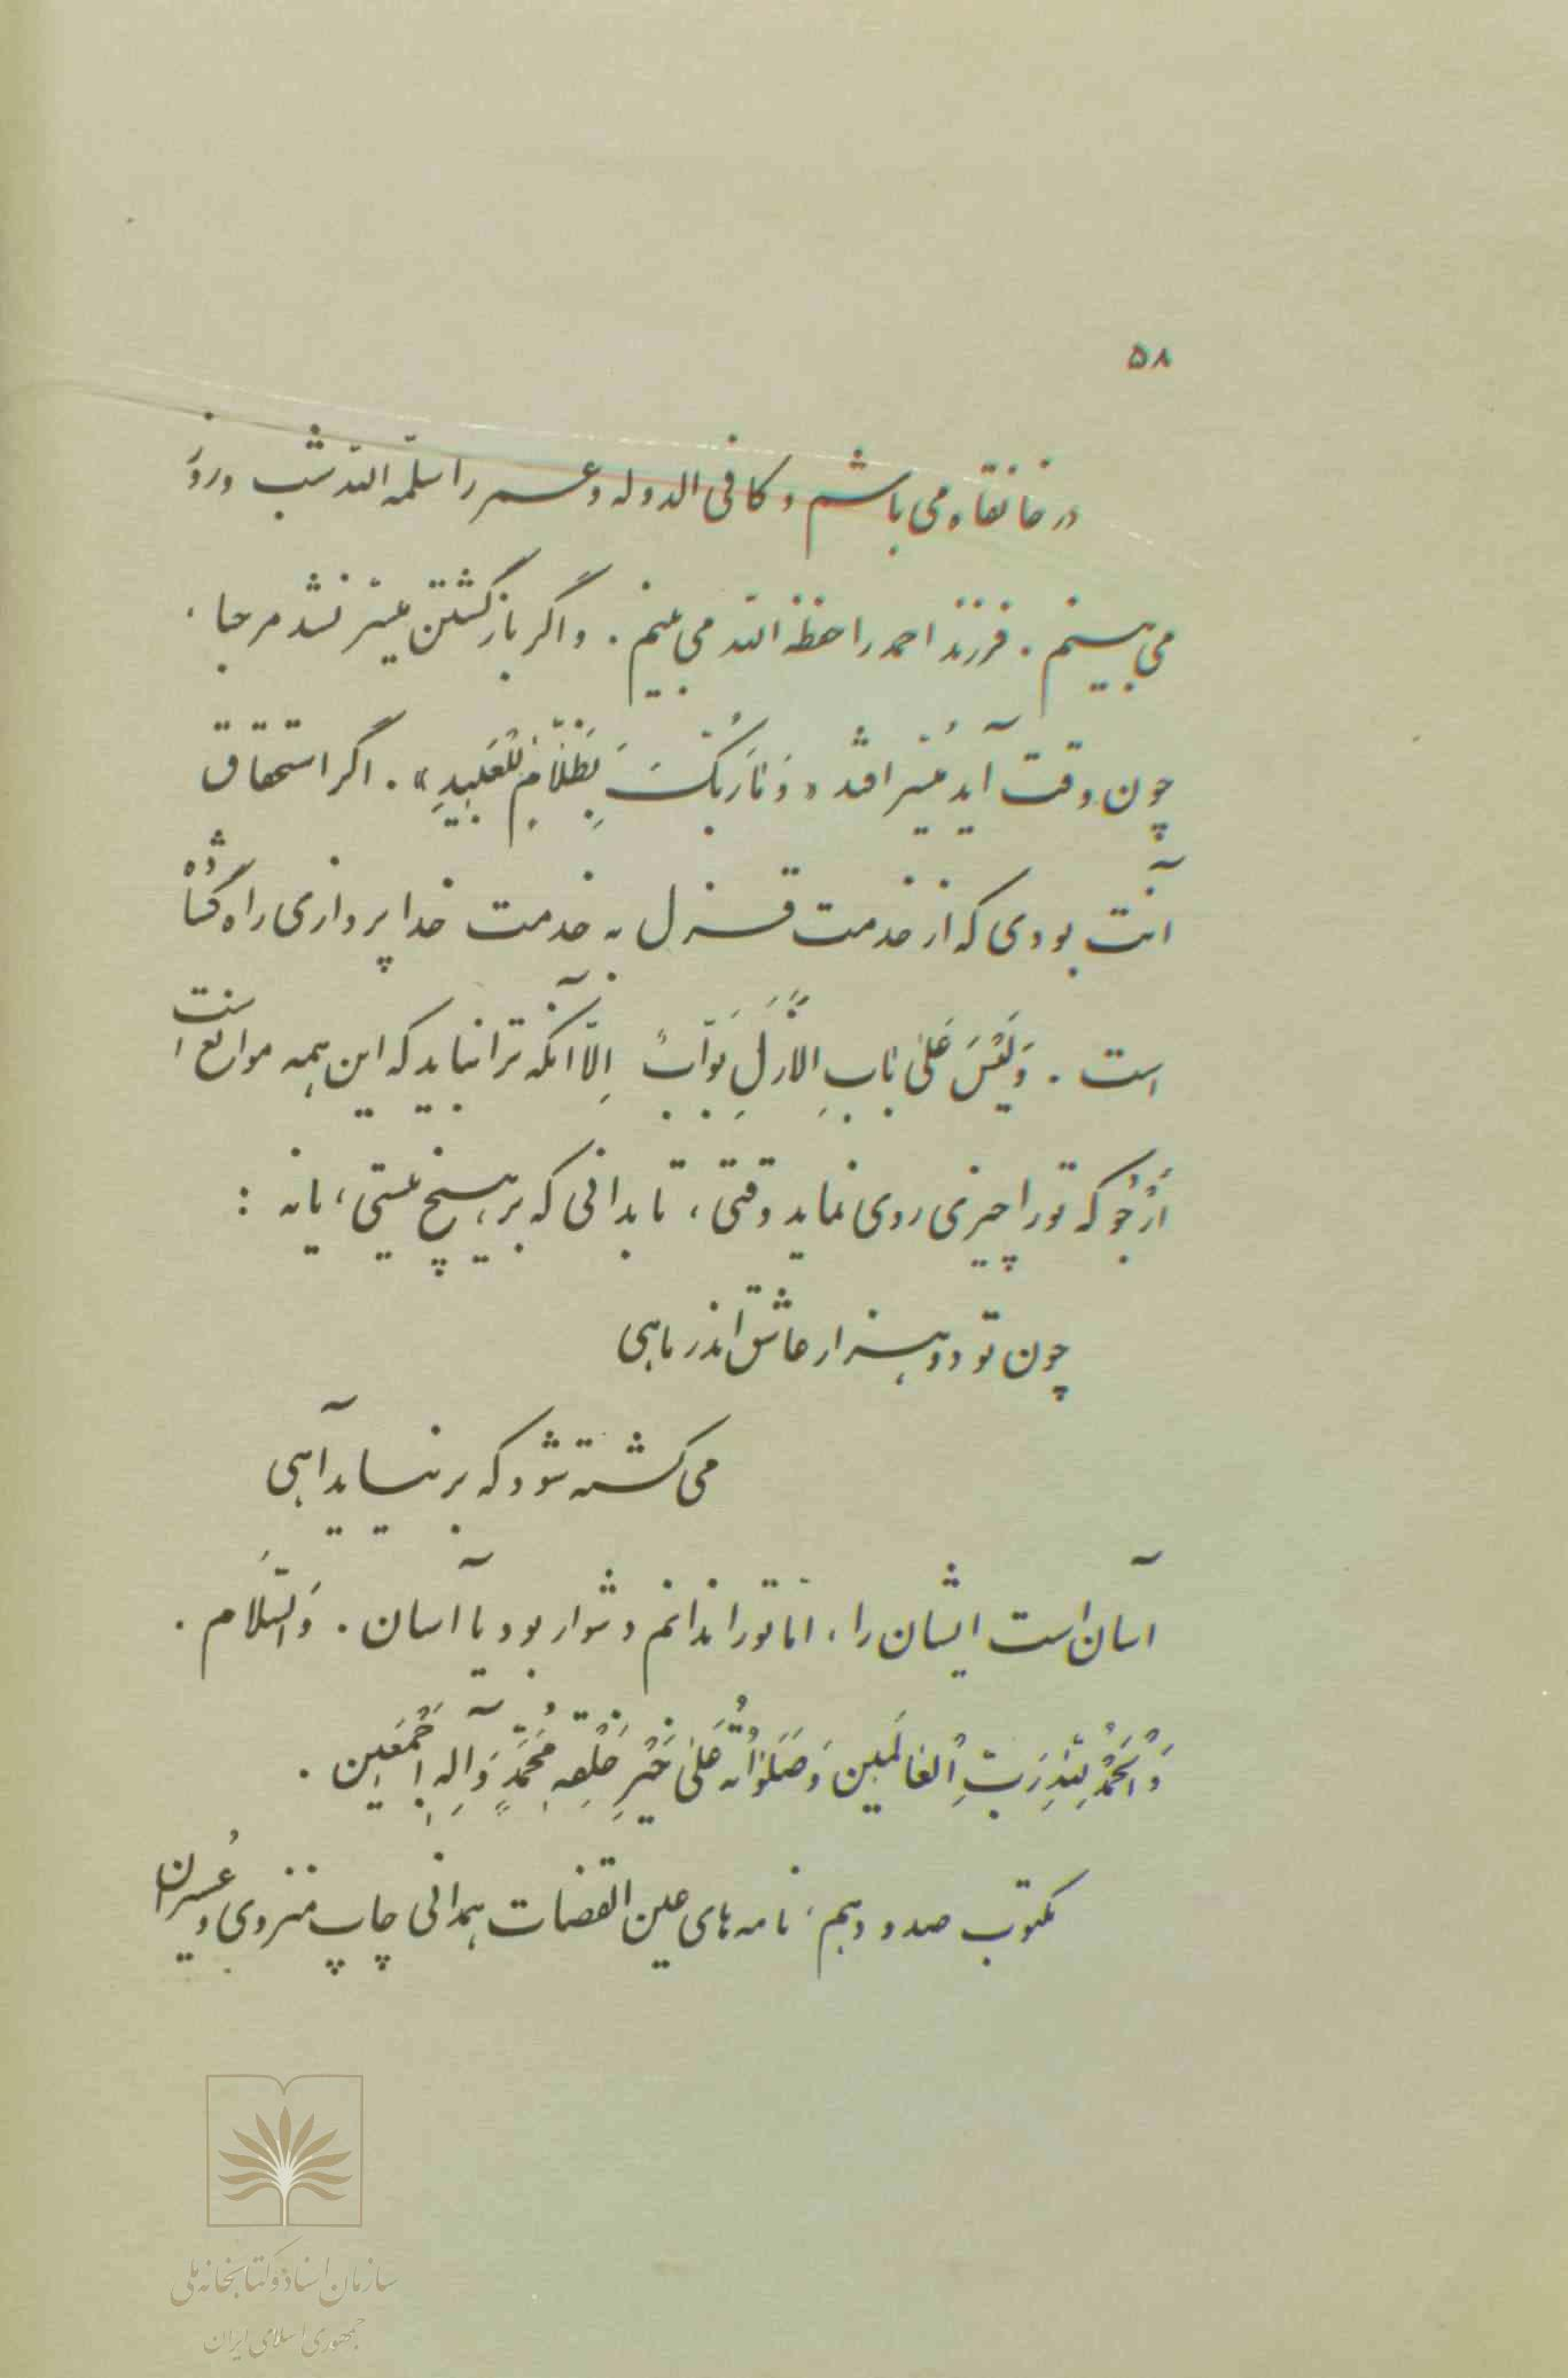 ۵۸
در خانقاه می باشم و کافی الدوله و عمر را سلّمه الله شب و روز
می بینم . فرزند احمد را حفظه الله می بینم . و اگر باز گشتن میسّر نشد مرحبا ،
چون وقت آید مُیَسَّر افتد « وَ مٰا رَبُّکَ بِظَلّٰامٍ لِلْعَبیدِ » . اگر استحقاق
آنت بودی که از خدمت قزل به خدمت خدا پردازی راه گشاده
است . وَ لَیْسَ عَلیٰ بٰابِ الاَزَلِ بَوّٰابٌ اِلّا آنکه ترا نباید که این همه موانع است
اَرْجُو که تورا چیزی روی نماید وقتی ، تا بدانی که بر هیچ نیستی ، یا نه :
چون تو دو هزار عاشق اندر ماهی
می کشته شود که بر نیاید آهی
آسان است ایشان را ، امّا تو را ندانم دشوار بود یا آسان . وَ السَّلام .
وَ الْحَمْدُ لِلّٰهِ رَبِّ الْعٰالَمین وَ صَلَوٰاتُهُ عَلیٰ خَیْرِ خَلْقِهِ مُحَمَّدٍ وَ آلِهِ اَجْمَعین .
مکتوب صد و دهم ، نامه های عین القضات همدانی چاپ منزوی و عُسیران
سازمان اسناد و کتابخانه ملی
جمهوری اسلامی ایران